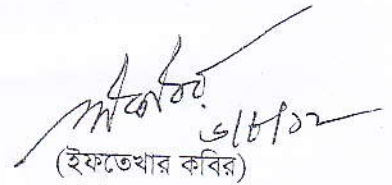 ৬/৮/১২
(ইফতেখার কবির)